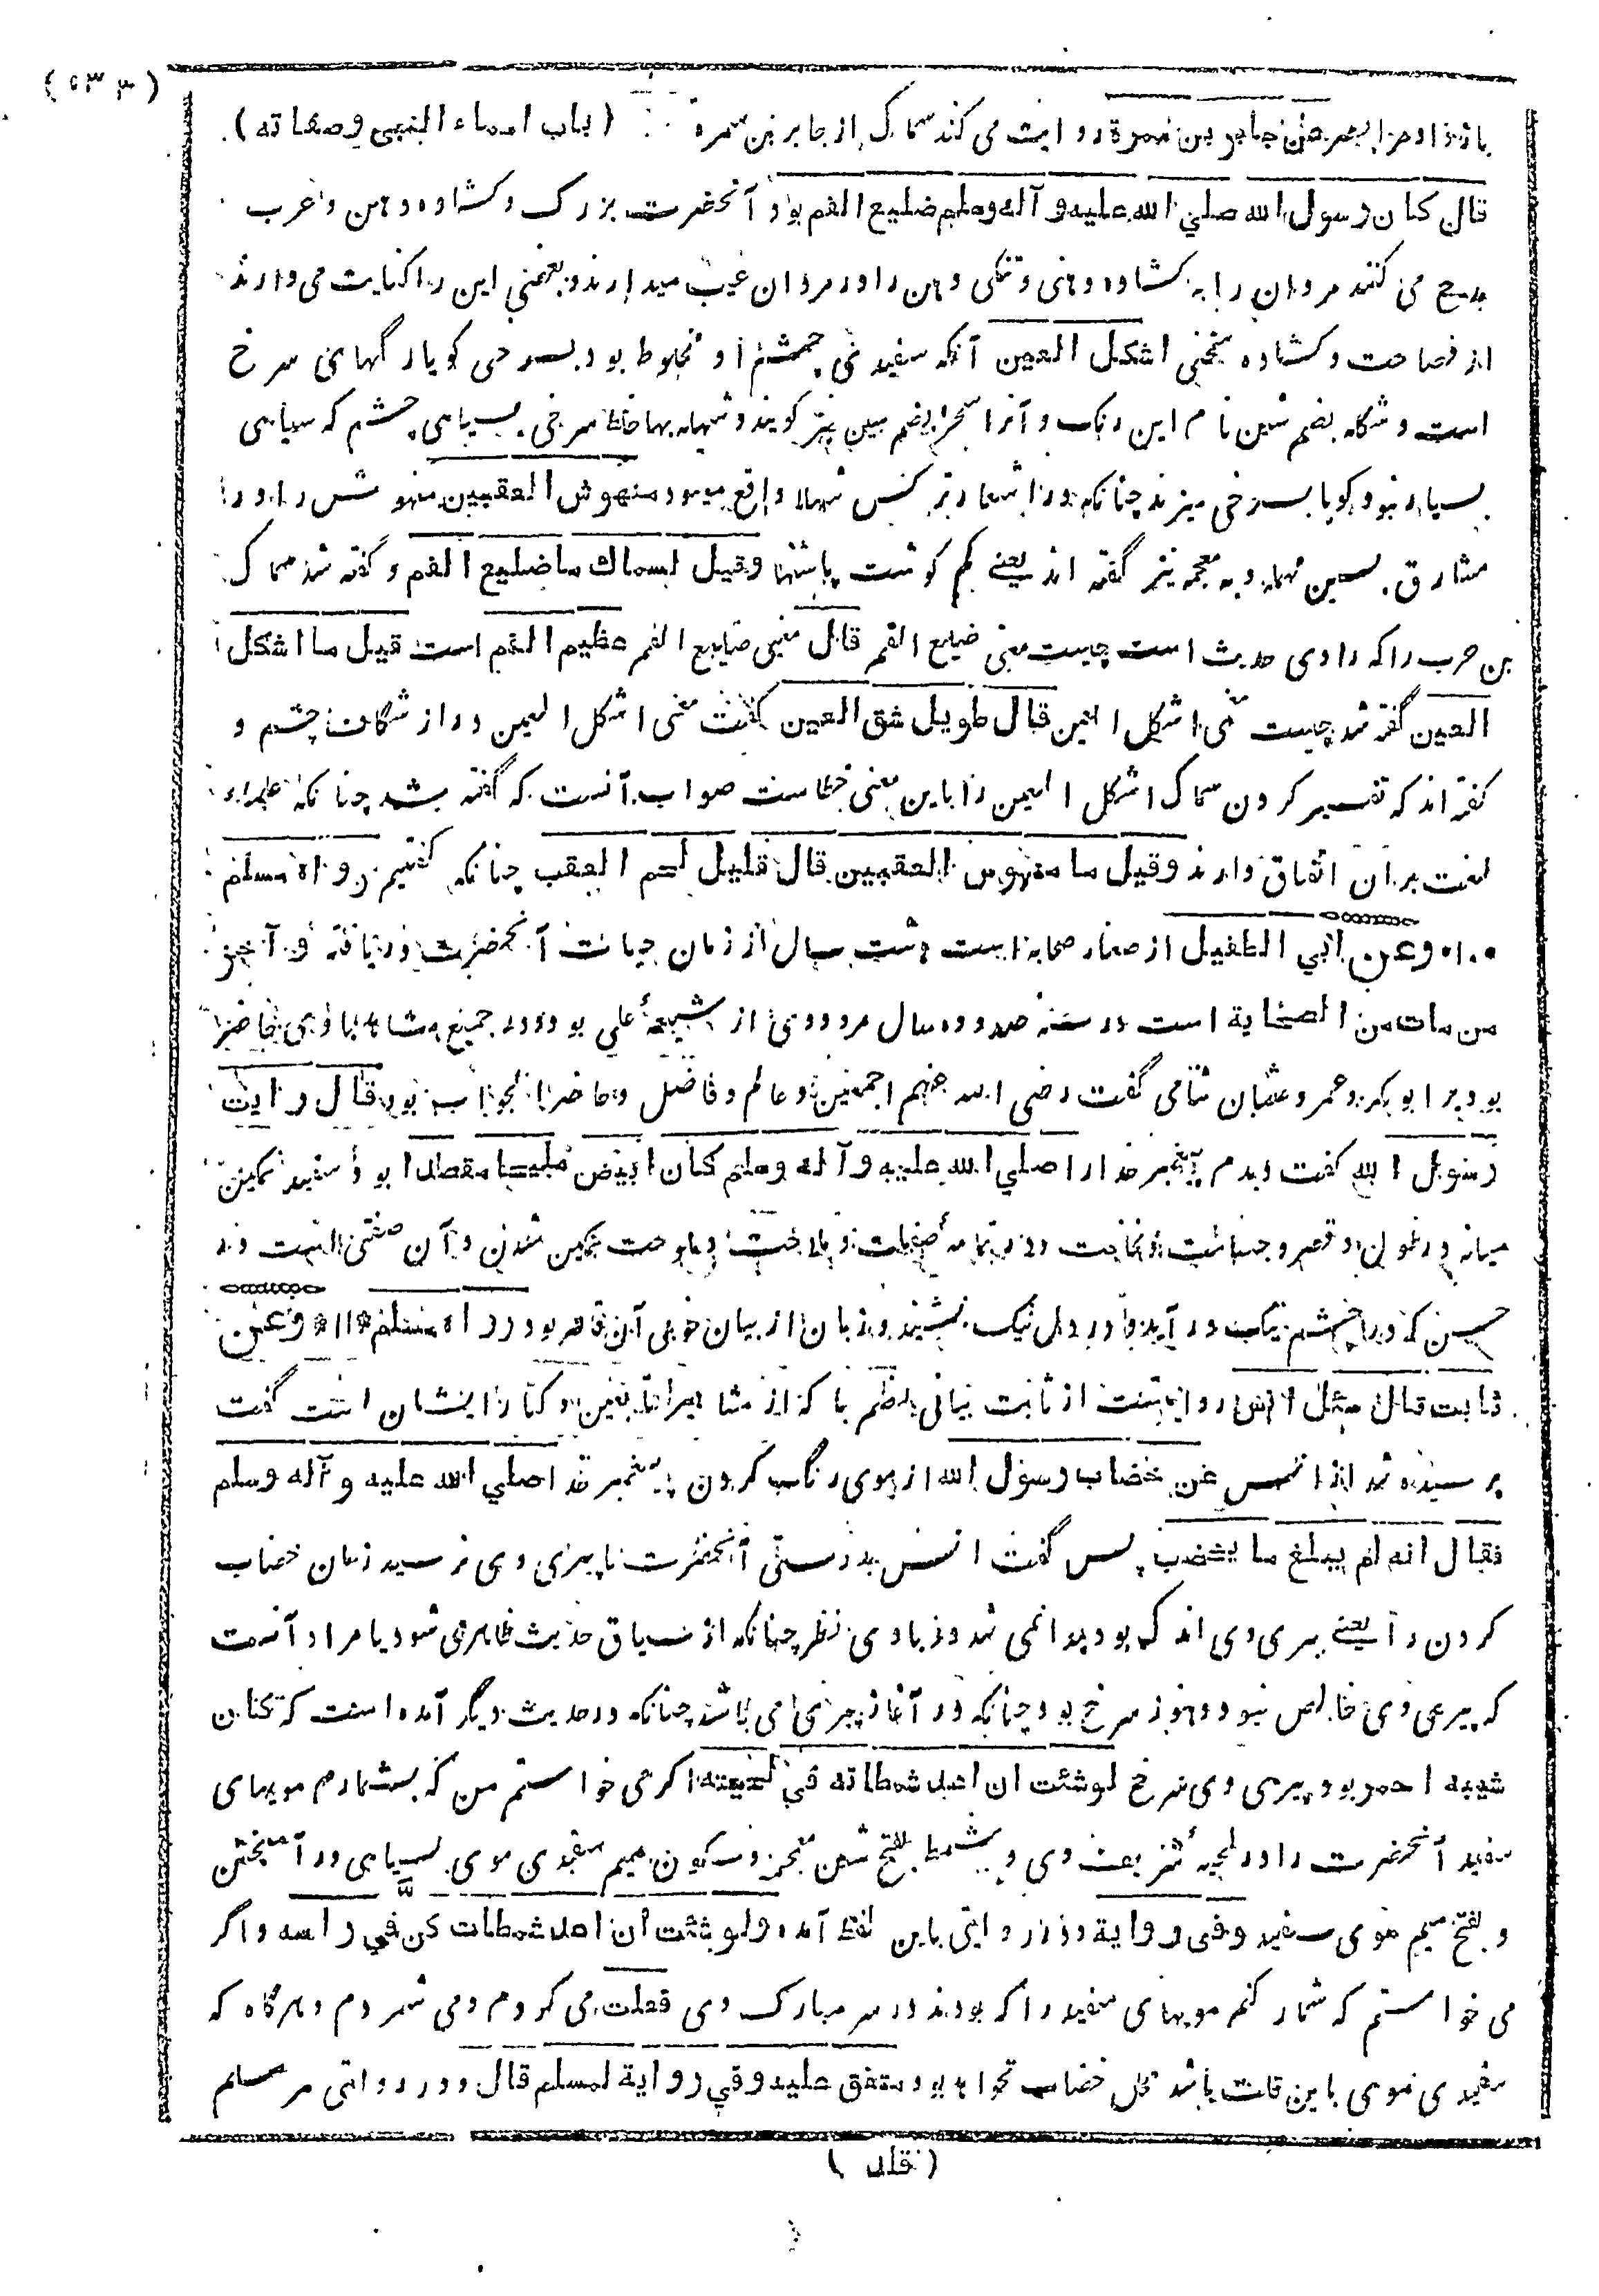 (باب اسماء النبي وصفاته)
عن جابر بن سمرة روایت می کند سماک از جابر بن سمره
قال كان رسول الله صلي الله عليه و آله وسلم ضليع الفم بود آنحضرت بزرک و کشاده دهن و عرب
مدح می کنند مردان را به کشاده دهنی و تنکی دهن را در مردان عیب میدارند و بعضی این را کنایت می دارند
از فصاحت و کشاده سخنی اشكل العين آنکه سفیدی چشم او مخلوط بود بسرخی کویا رگهای سرخ
است و شکله بضم شین نام این رنک و آنرا سجرا بضم سین نیز کویند و شهله بها خلط سرخی بسیاهی چشم که سیاهی
بسیار نبود کویا بسرخی میزند چنانکه در اشعار نرکس شهلا واقع میشود منهوش العقبين منهوش را در
مشارق بسین مهمله و به معجمه نیز گفته اند یعنے کم کوشت پاشنها وقيل لسماك ما ضليع الفم و گفته شد سماک
بن حرب را که راوی حدیث است چیست معنی ضلیع الفم قال معنی ضلیع الفم عظيم الفم است قيل ما اشكل
العين گفته شد چیست معنی اشکل العین قال طويل شق العين کفت معنی اشکل العین دراز شکاف چشم و
کفته اند که تفسیر کردن سماک اشکل العین را باین معنی خطاست صواب آنست که گفته شد چنانکه علماء
لغت بران اتفاق دارند وقيل ما منهوس العقبين قال قليل لحم العقب چنانکه کفتیم رواه مسلم
۱۰* وعن ابي الطفيل از صغار صحابه است هشت سال از زمان حیات آنحضرت دریافته و آخر
من مات من الصحابة است در سنه صد و ده سال مرد و وی از شیعهٔ علی بود و در جمیع مشاهد با وی حاضر
بود بر ابو بکر و عمر و عثمان ثنا می گفت رضی الله عنهم اجمعین و عالم و فاضل و حاضر الجواب بود قال رايت
رسول الله کفت دیدم پیغمبر خدا را صلي الله عليه و آله وسلم كان ابيض مليحا مقصدا بود سفید نمکین
میانه در طول و قصر و جسامت و نحافت و در تمامه صفات و ملاحت و ملوحت نمکین شدن و آن صفتی است در
حسن که در چشم نیک در آید و در دل نیک نشیند و زبان از بیان خوبی آن قاصر بود رواه مسلم *۱۱* وعن
ثابت قال سئل انس روایتست از ثابت بنانی بضم با که از مشاهیر تابعین و کبار ایشان است گفت
پرسیده شد از انس عن خضاب رسول الله از موی رنگ کردن پیغمبر خدا صلي الله عليه و آله وسلم
فقال انه لم يبلغ ما يخضب پس گفت انس بدرستی آنحضرت تا پیری وی نرسید زمان خضاب
کردن را یعنے پیری وی اندک بود پیدا نمی شد در بادی نظر چنانکه از سیاق حدیث ظاهر می شود یا مراد آنست
که پیری وی خالص نبود و هنوز سرخ بود چنانکه در آغاز پیری می باشد چنانکه در حدیث دیگر آمده است که کان
شيبه احمر بود پیری وی سرخ لو شئت ان اعد شمطاته في لحيته اکر می خواستم من که بشمارم مویهای
سفید آنحضرت را در لحیه شریف وی و شمط بفتح شین معجمه و سکون میم سفیدی موی بسیاهی در آمیختن
و بفتح میم موی سفید وفي رواية و در روایتی باین لفظ آمده ولو شئت ان اعد شمطات كن في راسه و اگر
می خواستم که شمار کنم مویهای سفید را که بودند در سر مبارک وی فعلت می کردم و می شمردم و هرگاه که
سفیدی موی باین قلت باشد محل خضاب نخواهد بود متفق عليه وفي رواية لمسلم قال و در روایتی مر مسلم